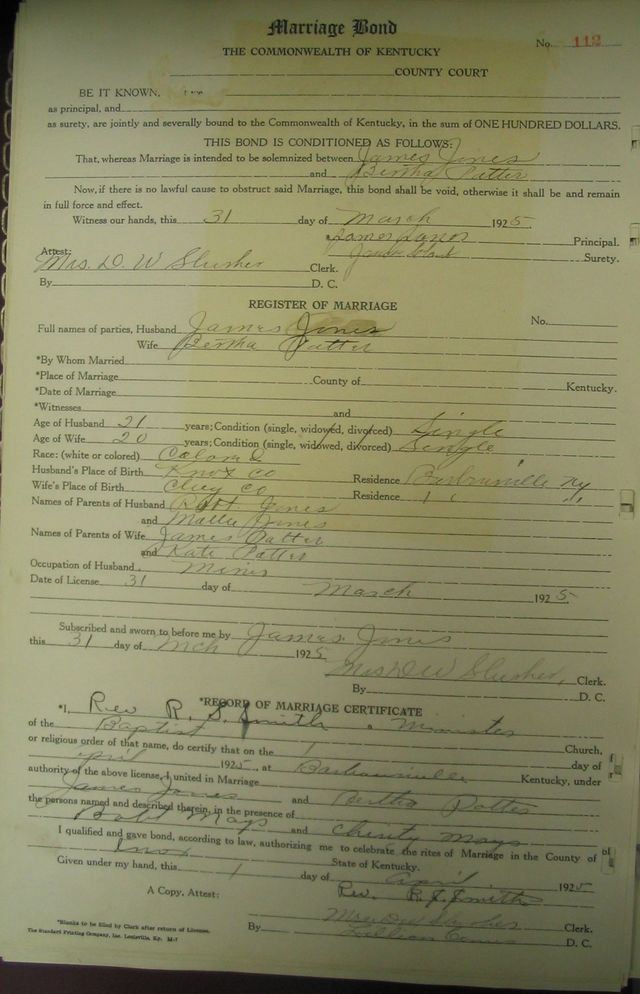 Marriage Bond
No. 112
THE COMMONWEALTH OF KENTUCKY
COUNTY COURT
BE IT KNOWN,
as principal, and
as surety, are jointly and severally bound to the Commonwealth of Kentucky, in the sum of ONE HUNDRED DOLLARS.
THIS BOND IS CONDITIONED AS FOLLOWS:
That, whereas Marriage is intended to be solemnized between James Jones
and Bertha Potter
Now, if there is no lawful cause to obstruct said Marriage, this bond shall be void, otherwise it shall be and remain
in full force and effect.
Witness our hands, this 31 day of March 1925
James Jones Principal.
Surety.
Attest:
Mrs. D. W Slusher Clerk.
By D. C.
REGISTER OF MARRIAGE
No.
Full names of parties, Husband James Jones
Wife Bertha Potter
*By Whom Married
*Place of Marriage County of Kentucky.
*Date of Marriage
*Witnesses and
Age of Husband 21 years; Condition (single, widowed, divorced) Single
Age of Wife 20 years; Condition (single, widowed, divorced) Single
Race: (white or colored) Colored
Husband's Place of Birth Knox Co Residence Barbourville Ky
Wife's Place of Birth Clay Co Residence " " "
Names of Parents of Husband Robt. Jones
and Mollie Jones
Names of Parents of Wife James Potter
and Kate Potter
Occupation of Husband Miner
Date of License 31 day of March 1925
Subscribed and sworn to before me by James Jones
this 31 day of Mch 1925
Mrs D W Slusher, Clerk.
By D. C.
*RECORD OF MARRIAGE CERTIFICATE
*I, Rev R. S. Smith, a Minister
of the Baptist Church,
or religious order of that name, do certify that on the 1 day of
April 1925, at Barbourville Kentucky, under
authority of the above license, I united in Marriage
James Jones and Bertha Potter
the persons named and described therein, in the presence of
Robt Mays and Mays
I qualified and gave bond, according to law, authorizing me to celebrate the rites of Marriage in the County of
Knox State of Kentucky.
Given under my hand, this 1 day of April, 1925
Rev. R. S. Smith
A Copy, Attest:
Mrs D W Slusher Clerk.
By Lillian D. C.
*Blanks to be filled by Clerk after return of License.
The Standard Printing Company, Inc. Louisville, Ky. M-7